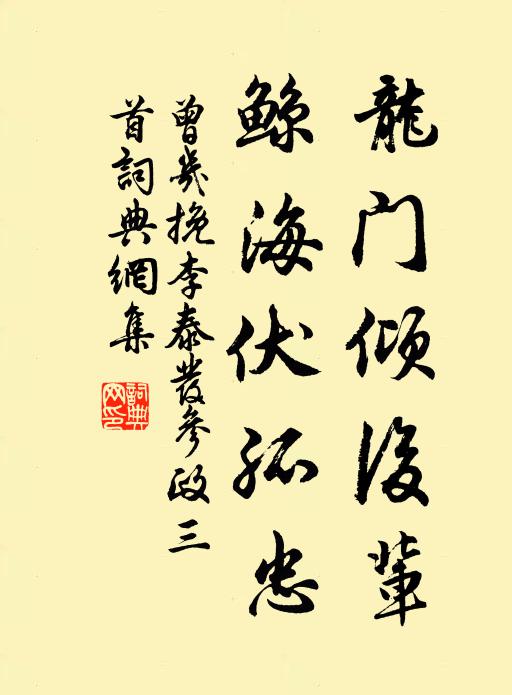 龍门傾後輩
鲸海伏孤忠
曾幾挽李泰發參政三
首詞典網集
詞典
网印